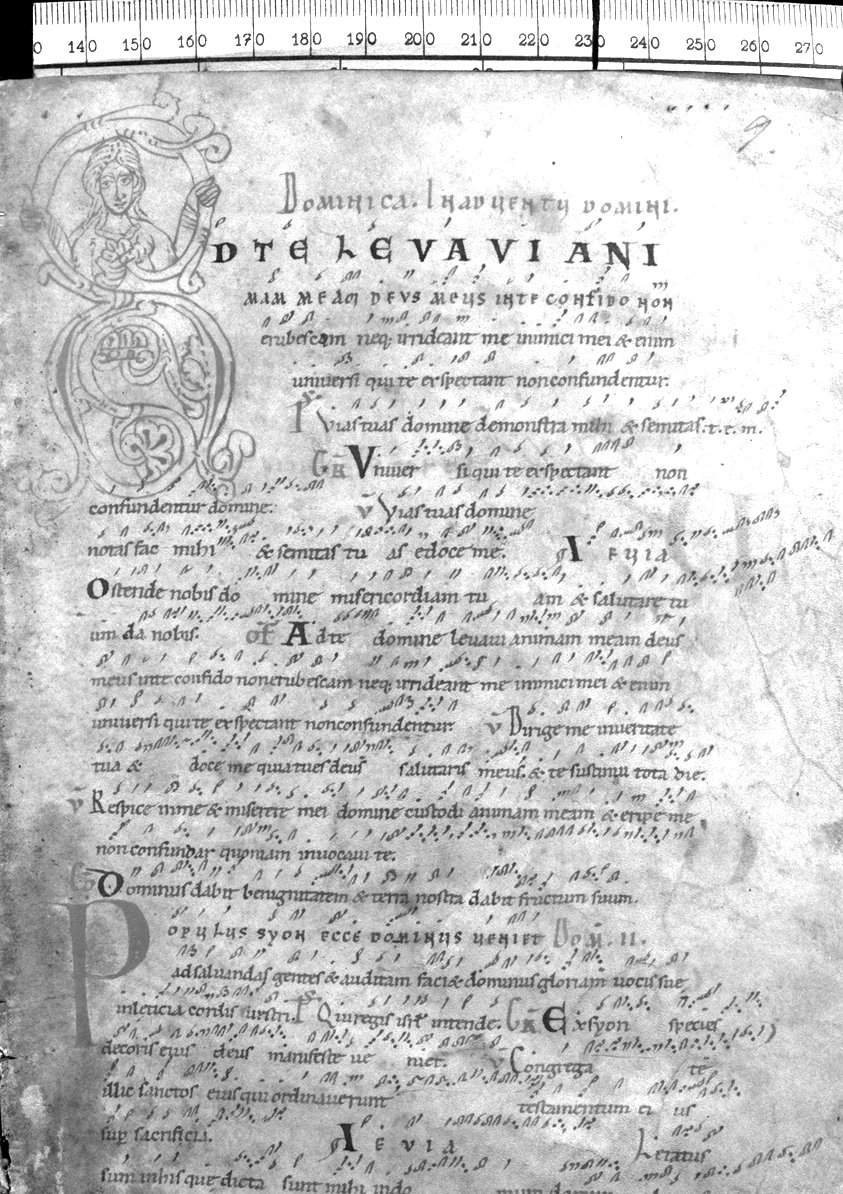 0 140 150 160 170 180 190 200 210 220 230 240 250 260 270
9
DOMINICA. IN ADVENTU DOMINI.
D TE LEVAVI ANI
MAM MEAM DEUS MEUS IN TE CONFIDO NON
erubescam neq; irrideant me inimici mei & enim
universi qui te exspectant non confundentur.
Ps Vias tuas domine demonstra mihi & semitas. t. t. m.
GR Univer si qui te exspectant non
confundentur domine. V Vias tuas domine
notas fac mihi & semitas tu as edoce me. A EVIA
Ostende nobis do mine misericordiam tu am & salutare tu
um da nobis. OF Ad te domine levavi animam meam deus
meus in te confido non erubescam neq; irrideant me inimici mei & enim
universi qui te exspectant non confundentur. V Dirige me in veritate
tua & doce me quia tu es deus salutaris meus. & te sustinui tota die.
V Respice in me & miserere mei domine custodi animam meam & eripe me
non confundar quoniam invocavi te.
CO Dominus dabit benignitatem & terra nostra dabit fructum suum.
POPULUS SYON ECCE DOMINUS VENIET DOM. II.
ad salvandas gentes & auditam faci& dominus gloriam vocis sue
in leticia cordis vestri. Ps Qui regis isrl intende. GR Ex syon species
decoris eius deus manifeste ve niet. V Congrega te
illic sanctos eius qui ordinaverunt testamentum ei us
sup sacrificia. A EVIA Letatus
sum in his que dicta sunt mihi in do mum domini